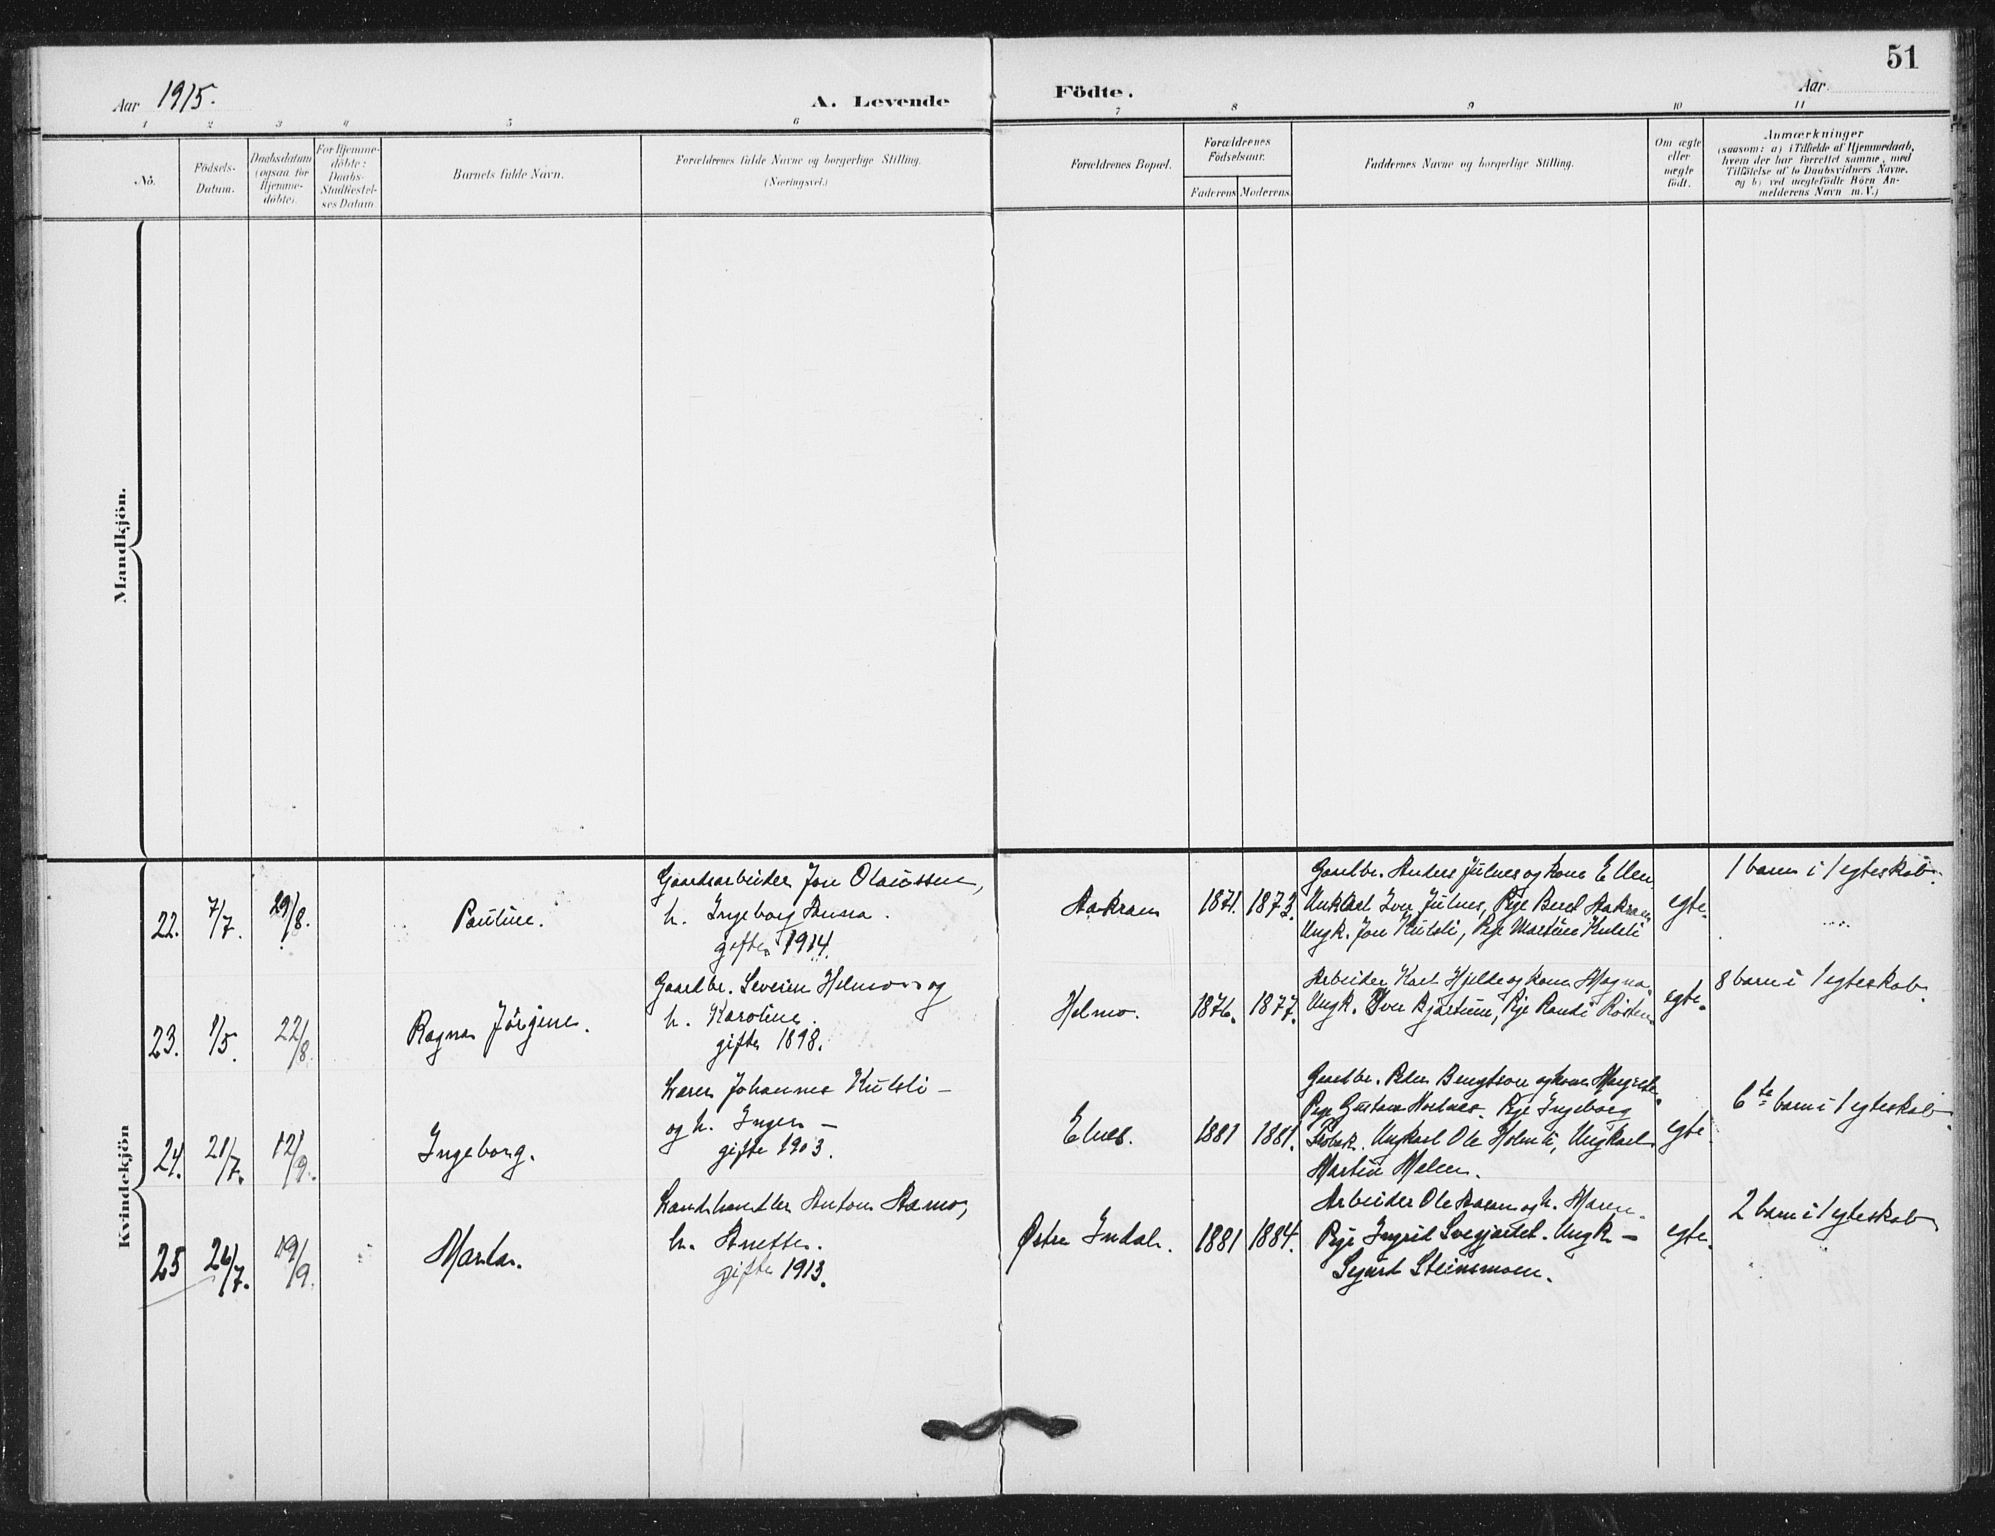 51
Aar 1915.
A. Levende Födte.
Aar
1 2 3 4 5 6 7 8 9 10 11
No.
Födsels-
Datum.
Daabsdatum
(ogsaa for
Hjemme-
döbte).
For Hjemme-
döbte:
Daabs-
Stadfæstel-
ses Datum
Barnets fulde Navn.
Forældrenes fulde Navne og borgerlige Stilling.
(Næringsvei.)
Forældrenes Bopæl.
Forældrenes
Födselsaar.
Faderens
Moderens.
Faddernes Navne og borgerlige Stilling.
Om ægte
eller
uægte
födt.
Anmærkninger
(saasom: a) i Tilfælde af Hjemmedaab,
hvem der har forrettet samme, med
Tilföielse af to Daabsvidners Navne,
og b) ved uægtefödte Börn An-
melderens Navn m. V.)
Mandkjön.
Kvindekjön
22. 7/7. 29/8. Pauline.
Gaardsarbeider Jon Olaussen,
h. Ingeborg Anna.
gifte 1914.
1871. 1873.
Gaardbr. Anders Julnes og kone Ellen
Ungkarl Iver Julnes, Pige Beret
Ungk. Jon Kulsli, Pige Martine Kulsli
egte.
1 barn i 1 egteskab.
23. 1/5. 22/8. Ragna Jörgine.
Gaardbr. Severin Helmo og
h. Karoline.
gifte 1898.
Helmo.
1876. 1877.
Arbeider Karl Hjelde og kone Magna.
Ungk. Iver, Pige Randi
egte.
8 barn i 1 egteskab.
24. 21/7. 12/9. Ingeborg.
Lærer Johannes Kulsli -
og h. Inger -
gifte 1903.
Elnes.
1881 1881.
Gaardbr. Peder Bengtson og kone
Pige Gustava. Pige Ingeborg
Ungkarl Ole Holmli, Ungkarl
Martin Melen.
egte
6te barn i 1 egteskab.
25 26/7. 19/9. Marta.
Landhandler Anton Aamo,
h. Anette.
gifte 1913.
Østre Indal.
1881 1884.
Arbeider Ole og h. Maren.
Pige Ingrid. Ungk -
Sigurd Steinsmoen.
egte.
2 barn i 1 egteskab